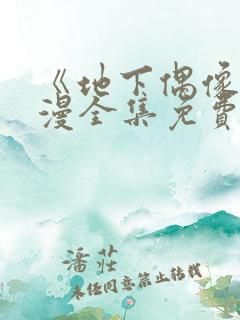 《地下偶像
漫全集免费
潘莊
未经同意禁止转载